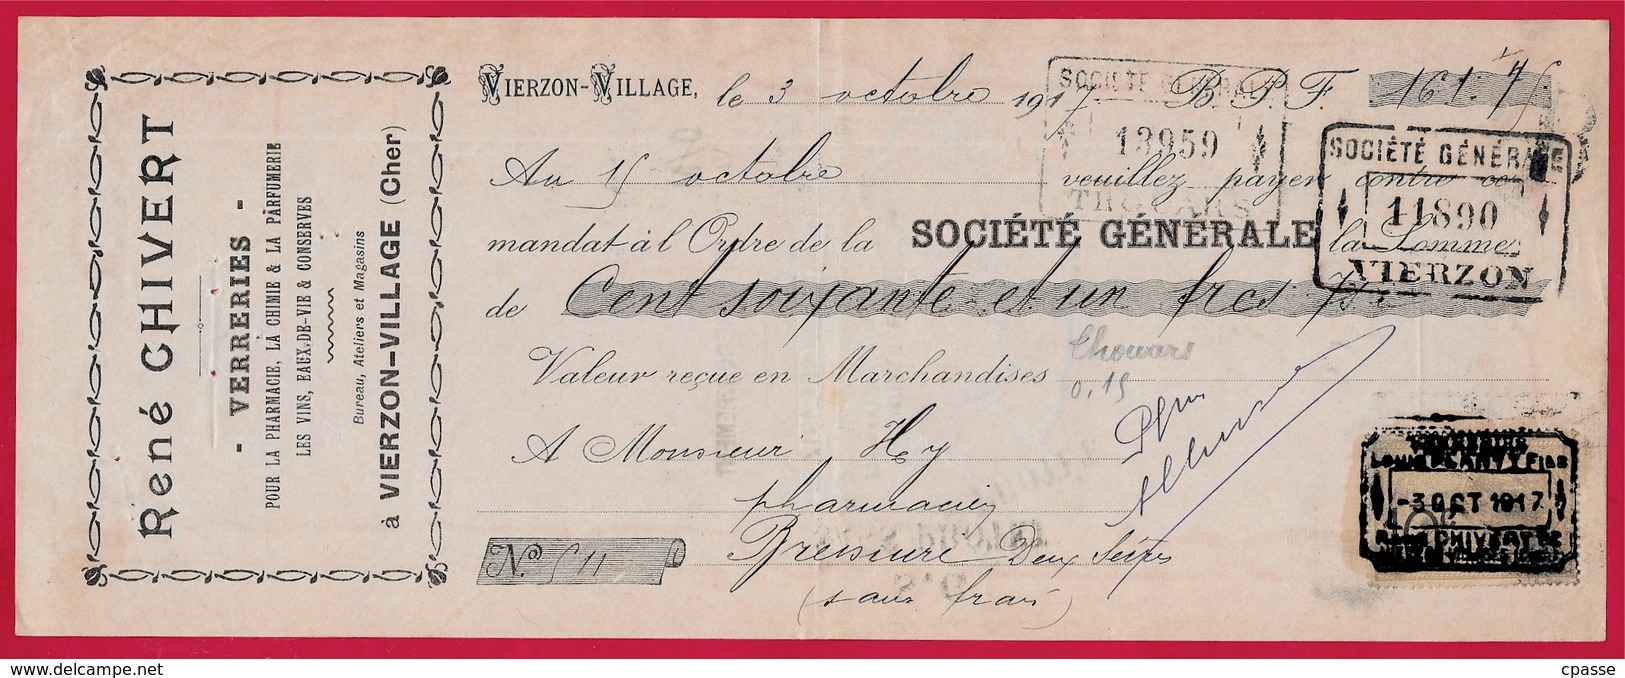 René CHIVERT
- VERRERIES -
POUR LA PHARMACIE, LA CHIMIE & LA PARFUMERIE
LES VINS, EAUX-DE-VIE & CONSERVES
Bureau, Ateliers et Magasins
à VIERZON-VILLAGE (Cher)
VIERZON-VILLAGE, le 3 octobre 1917 B.P.F. 161.75
SOCIÉTÉ GÉNÉRALE
13959
THOUARS
SOCIÉTÉ GÉNÉRALE
11890
VIERZON
Au 15 octobre veuillez payer contre ce
mandat à l'Ordre de la SOCIÉTÉ GÉNÉRALE la Somme
de Cent soixante et un frcs 75
Valeur reçue en Marchandises
Thouars
0,15
A Monsieur Hy
pharmacien
Bressuire Deux Sèvres
(sans frais)
No 511
-3 OCT 1917
RENÉ CHIVERT
delcampe.net
cpasse